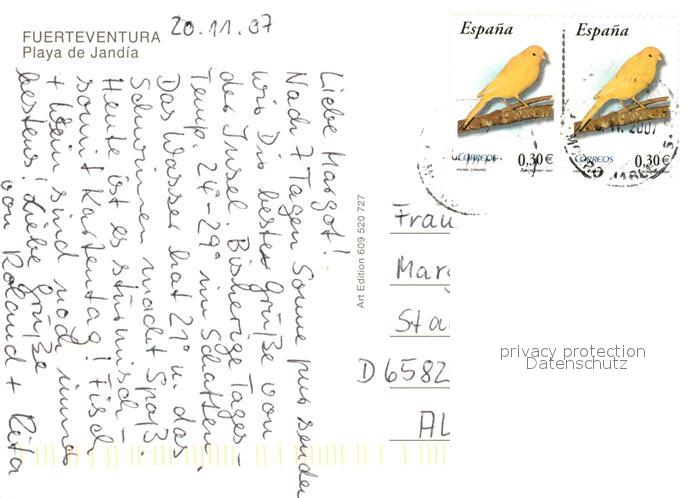 FUERTEVENTURA
Playa de Jandía
20.11.07
Liebe Margot!
Nach 7 Tagen Sonne pur senden
wir Dir beste Grüße von
der Insel. Bisherige Tages-
Temp. 24-29° im Schatten.
Das Wasser hat 21° u. das
Schwimmen macht Spaß.
Heute ist es stürmisch -
somit Kartentag! Fisch
+ Wein sind noch immer
bestens! Liebe Grüße
von Roland + Rita
Art Edition 609 520 727
España
CORREOS
0,30 €
España
CORREOS
0,30 €
11.2007
Frau
Marg
Sta
D 6582
AL
privacy protection
Datenschutz